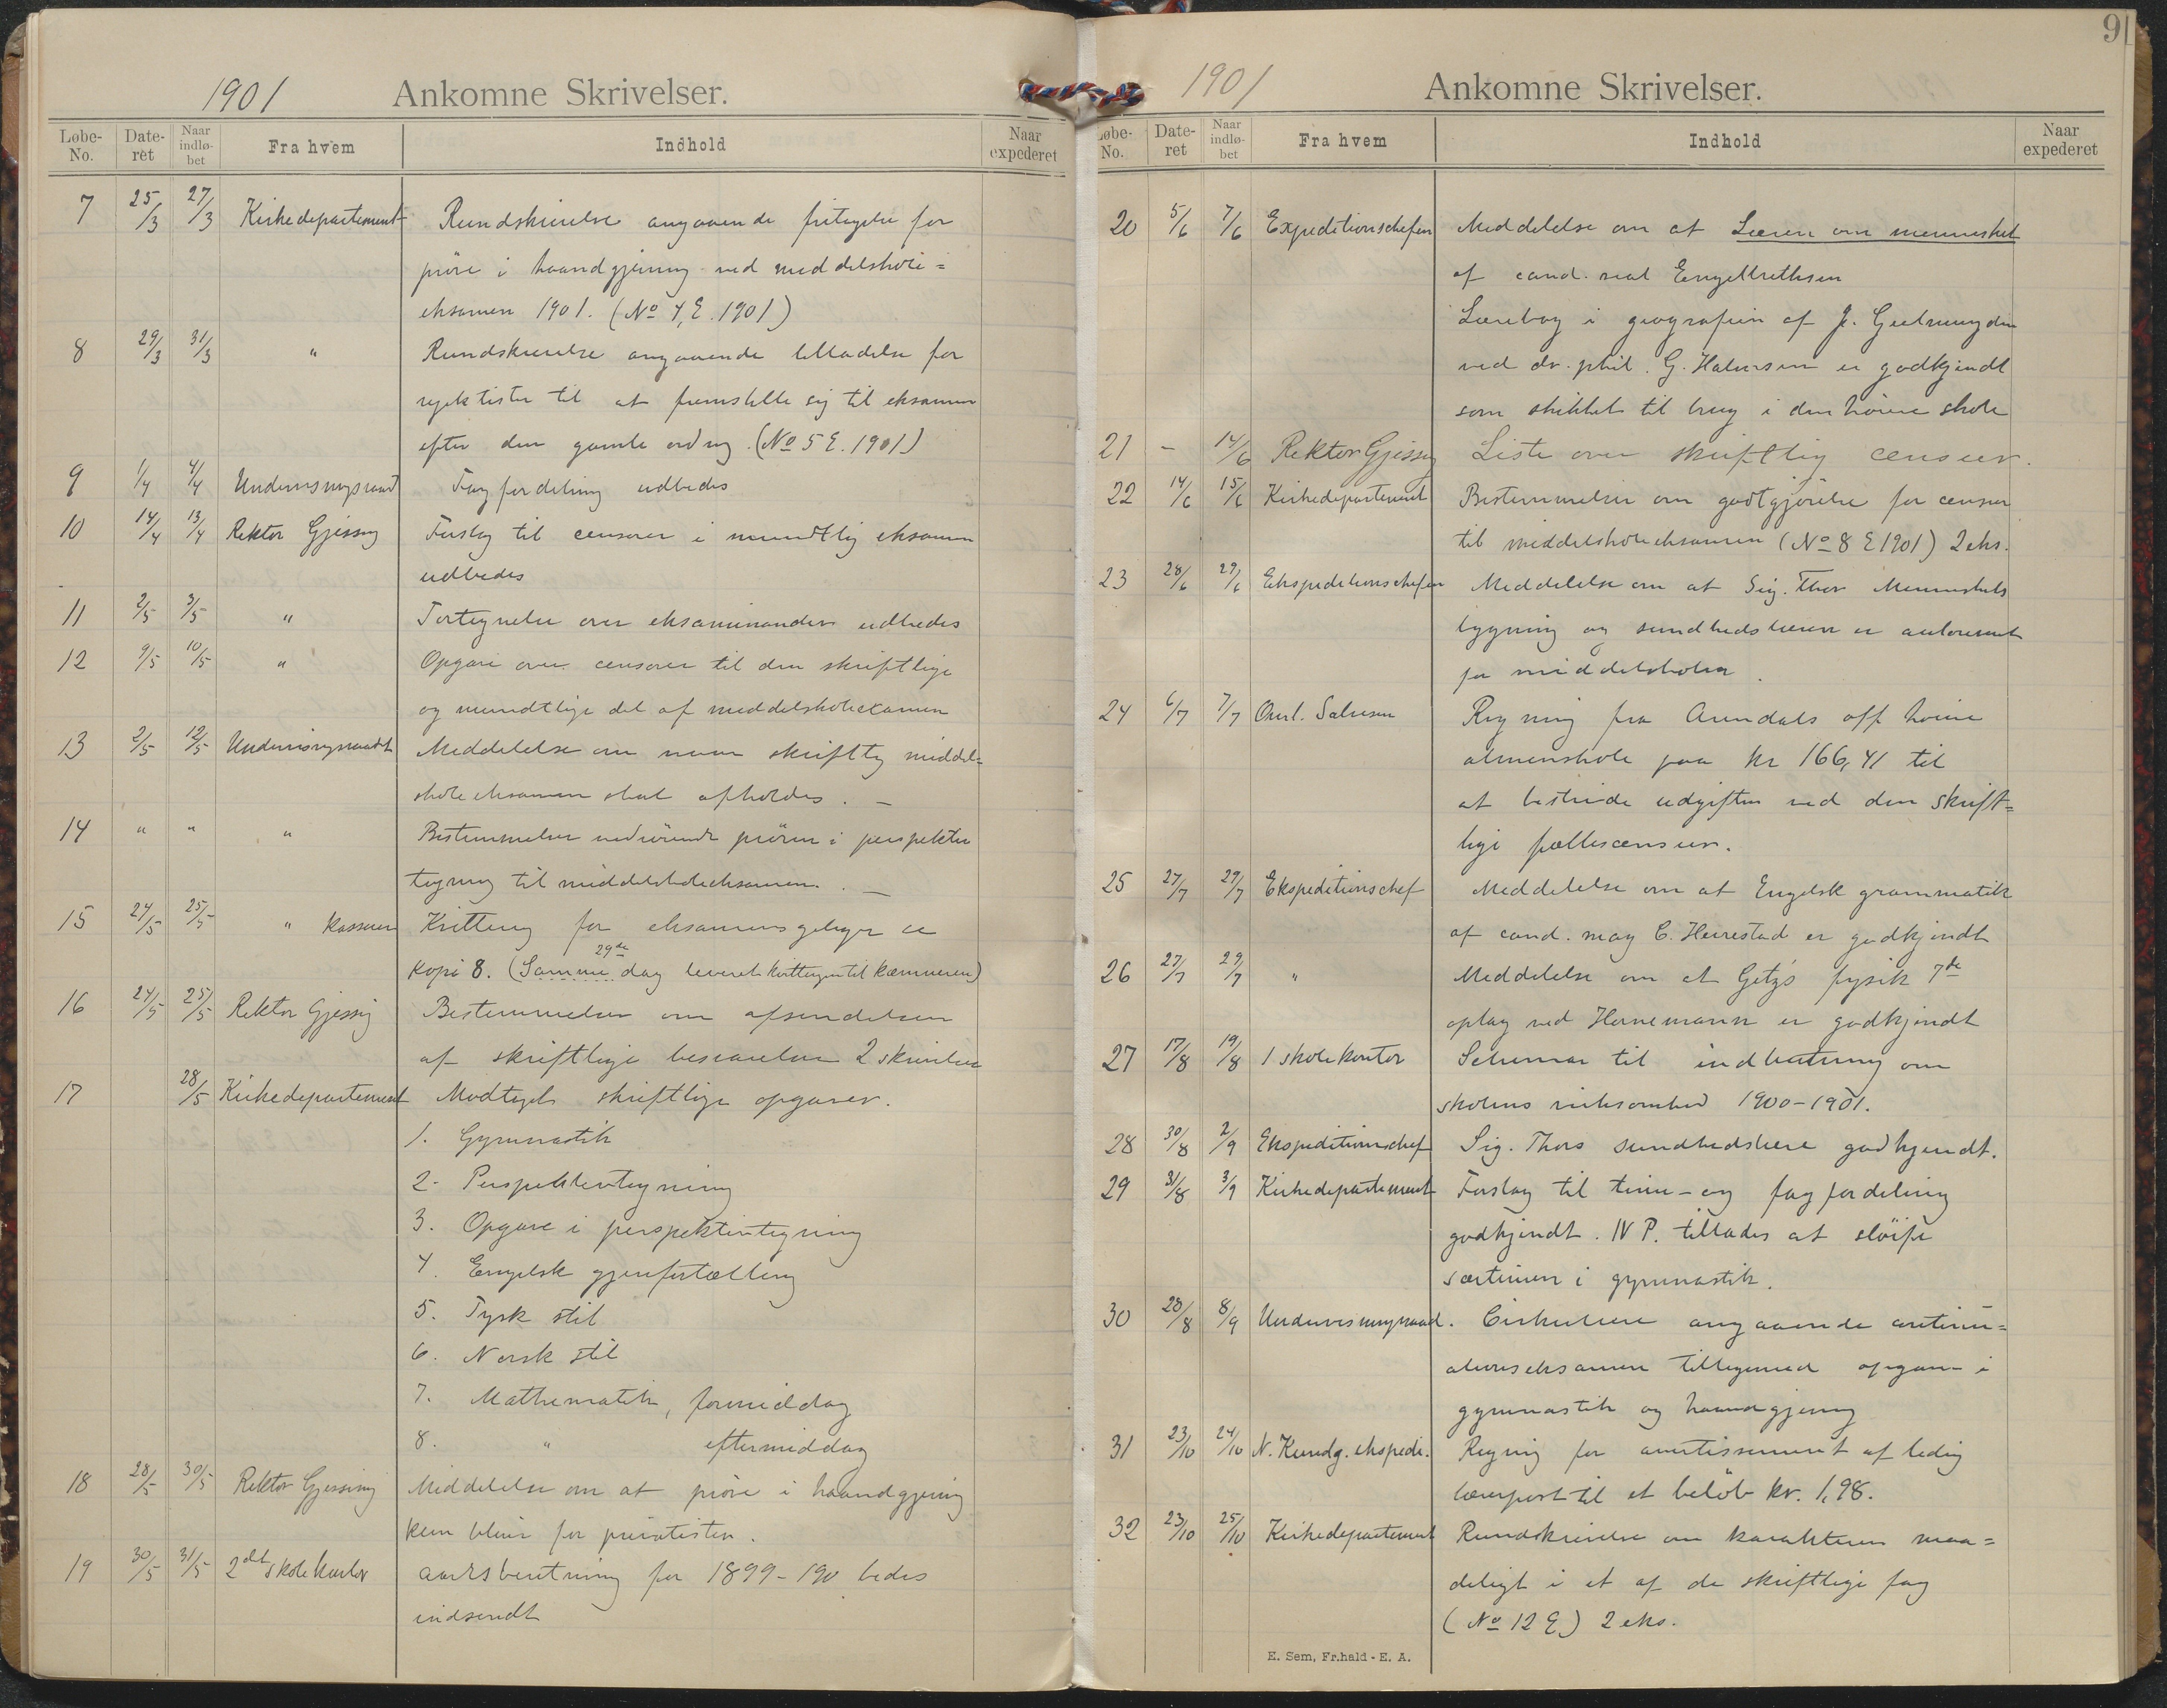 1901 Ankomne Skrivelser.
Løbe-No. Dateret Naar indløbet Fra hvem Indhold Naar expederet
7 25/3 27/3 Kirkedepartement Rundskrivelse angaaende fritagelse for
prøve i haandgjerning ved middelskole=
eksamen 1901. (No 4, E. 1901)
8 29/3 31/3 " Rundskrivelse angaaende tilladelse for
rejektister til at fremstille sig til eksamen
efter den gamle ordng. (No 5 E. 1901)
9 1/4 4/4 Undervisningsraad Fagfordeling udbedes
10 14/4 13/4 Rektor Gjessing Forslag til censorer i mundtlig eksamen
udbedes
11 2/5 3/5 " Fortegnelse over eksaminander udbedes
12 9/5 10/5 " Opgave over censorer til den skriftlige
og mundtlige del af middelskoleexamen
13 2/5 12/5 Undervisningsraadt Meddelelse om naar skriftlig middel=
skoleeksamen skal afholdes. —
14 " " " Bestemmelser vedrørende prøven i perspektiv
tegning til middelskoleeksamen. —
15 24/5 25/5 " kasserer Kvittering for eksamensgebyr se
29de
kopi 8. (Samme dag leveret kvitteringen til kæmneren)
16 24/5 25/5 Rektor Gjessig Bestemmelser om afsendelsen
af skriftlige besvarelser 2 skrivelser
17 28/5 Kirkedepartement Modtaget skriftlige opgaver.
1. Gymnastik
2. Perspektivtegning
3. Opgave i perspektivtegning
4. Engelsk gjenfortælling
5. Tysk stil
6. Norsk stil
7. Mathematik, formiddag
8. " eftermiddag
18 28/5 30/5 Rektor Gjessing Meddelelse om at prøve i haandgjerning
kun bliver for privatister.
19 30/5 31/5 2det skolekontor aarsberetning for 1899-190 bedes
indsendt
91
1901 Ankomne Skrivelser.
Løbe-No. Dateret Naar indløbet Fra hvem Indhold Naar expederet
20 5/6 7/6 Expeditionschefen Meddelelse om at Læren om mennesket
af cand. real Engelbrethsen
Lærebog i geografien af J. Gjetmunden
ved dr. phil. G. Halvorsen er godkjendt
som skikket til brug i den høiere skole
21 - 14/6 Rektor Gjessig Liste over skriftlig censur.
22 14/6 15/6 Kirkedepartement Bestemmelser om godtgjørelse for censur
til middelskoleeksamen (No 8 E 1901) 2 eks.
23 28/6 29/6 Ekspeditionschefen Meddelelse om at Sig. Thor Menneskets
bygning og sundhedslæren er autoriseret
for middelskolen.
24 6/7 7/7 Overl. Salvesen Regning fra Arendals off høiere
almenskole paa kr 166,41 til
at bestride udgifter ved den skrift=
lige fællescensur.
25 27/7 29/7 Ekspeditionschef Meddelelse om at Engelsk grammatik
af cand. mag C. Heirestad er godkjendt
26 27/7 29/7 " Meddelelse om at Getz's fysik 7de
oplag ved Hennemann er godkjendt
27 17/8 19/8 1 skolekontor Schemaer til indberetning om
skolens virksomhed 1900-1901.
28 30/8 2/9 Ekspeditionschef Sig. Thors sundhedslære godkjendt.
29 31/8 3/9 Kirkedepartement Forslag til time- og fagfordeling
godkjendt. N P. tillades at sløife
særtimen i gymnastik.
30 28/8 8/9 Undervisningsraad. Cirkulære angaaende artium=
altereksamen tilligemed opgave i
gymnastik og haandgjerning
31 23/10 24/10 N. Kundg. ekspedi. Regning for avertissement af ledig
lærerpost til et beløb kr. 1,98.
32 23/10 25/10 Kirkedepartement Rundskrivelse om karakteren maa=
deligt i et af de skriftlige fag
(No 12 E) 2 eks.
E. Sem, Fr.hald - E. A.